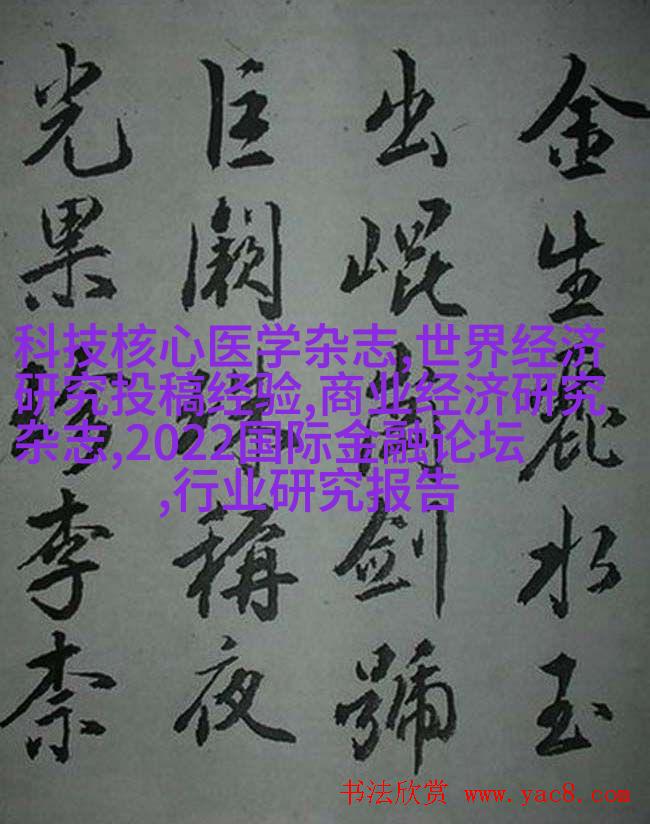 金生麗水玉
出崐岡劍號
巨闕珠稱夜
光果珍李柰
科技核心医学杂志,世界经济
研究投稿经验,商业经济研究
杂志,2022国际金融论坛
,行业研究报告
书法欣赏 www.yac8.com